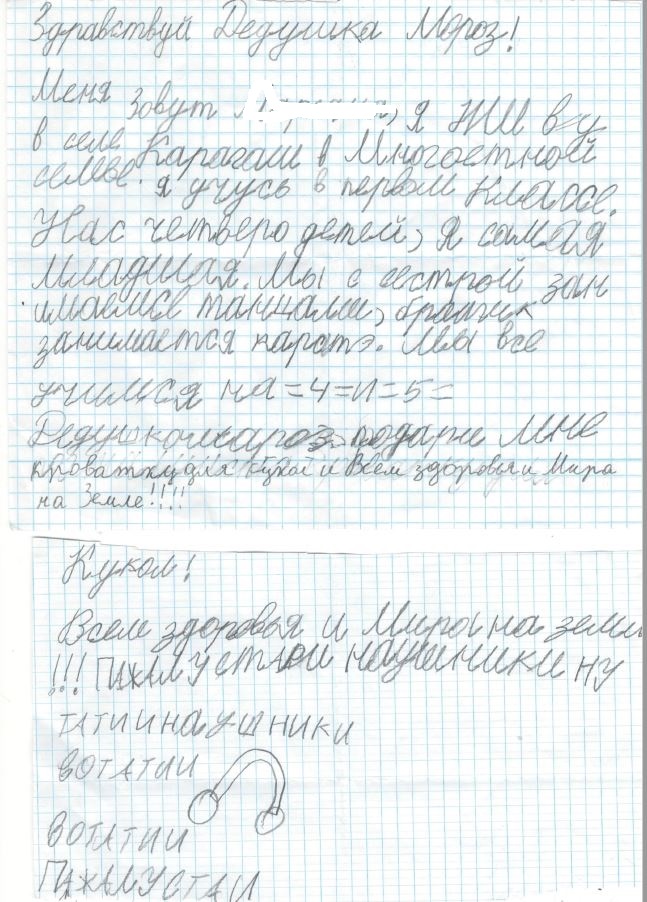 Здравствуй Дедушка Мороз!
Меня зовут я жи ву
в селе Карагаш в Многоетной
семье. я учусь в первом классе.
Нас четверо детей, я самая
младшая. Мы с сестрой зан
имаемся танцами, братик
занимается каратэ. Мы все
учимся на =4=и=5=
подари мне
кроватку для кукол и Всем здоровья и Мира
на Земле!!!!
Кукол!
Всем здоровья и Мира на земле
!!! ПАЖАЛУСТА И НАУШНИКИ НУ
ТАТИИ НАУШНИКИ
ВОТАТИИ
ВОТАТИИ
ПАЖАЛУСТАИ